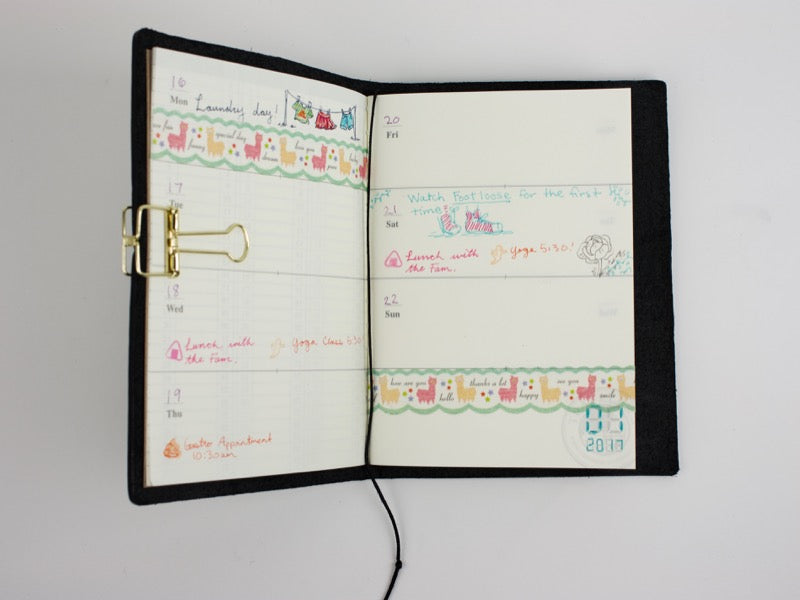 16
Mon
Laundry day!
special day
love you
funny
dream
17
Tue
18
Wed
Lunch with
the Fam.
Yoga Class 5:30
19
Thu
Gastro Appointment
10:30am
20
Fri
Watch Footloose for the first
time
21
Sat
Lunch with
the Fam.
Yoga 5:30!
22
Sun
how are you
thanks a lot
see you
hello
happy
smile
01
2017